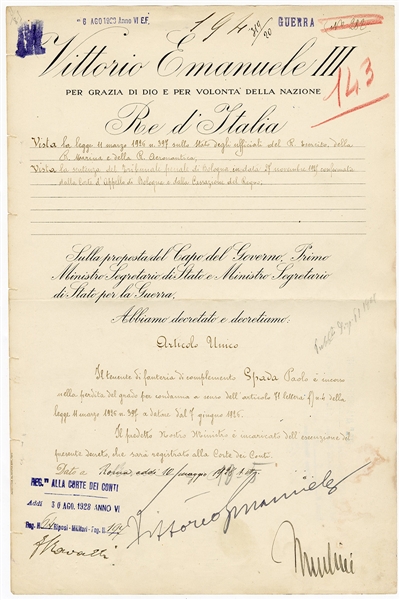 6 AGO 1928 Anno VI E.F.
194
GUERRA
Vittorio Emanuele III
143
PER GRAZIA DI DIO E PER VOLONTÀ DELLA NAZIONE
Re d'Italia
Vista la legge 11 marzo 1926 n. 397 sullo stato degli ufficiali del R. Esercito, della
R. Marina e della R. Aeronautica;
Vista la sentenza del Tribunale penale di Bologna in data 27 novembre 1927 confermata
dalla Corte d'Appello di Bologna e dalla Cassazione del Regno.
Sulla proposta del Capo del Governo, Primo
Ministro Segretario di Stato e Ministro Segretario
di Stato per la Guerra;
Abbiamo decretato e decretiamo:
Articolo Unico
Il tenente di fanteria di complemento Spada Paolo è incorso
nella perdita del grado per condanna a senso dell'articolo 71 lettera
legge 11 marzo 1926 n. 397 a datare dal 7 giugno 1926.
Il predetto Nostro Ministro è incaricato dell'esecuzione del
presente decreto, che sarà registrato alla Corte dei Conti.
Dato a Roma, addì 10 maggio 1928
REG.TO ALLA CORTE DEI CONTI
Addì 30 AGO. 1928 ANNO VI
Vittorio Emanuele
Mussolini